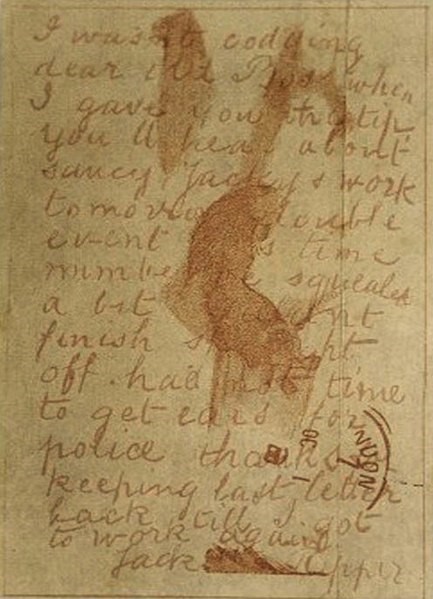 I wasnt codding
dear old Boss when
I gave you the tip.
youll hear about
saucy Jackys work
tomorrow double
event time
number squealed
a bit
finish
off. had not time
to get ears for
police thanks
keeping last letter
back till I got
to work again.
Jack
OC
1